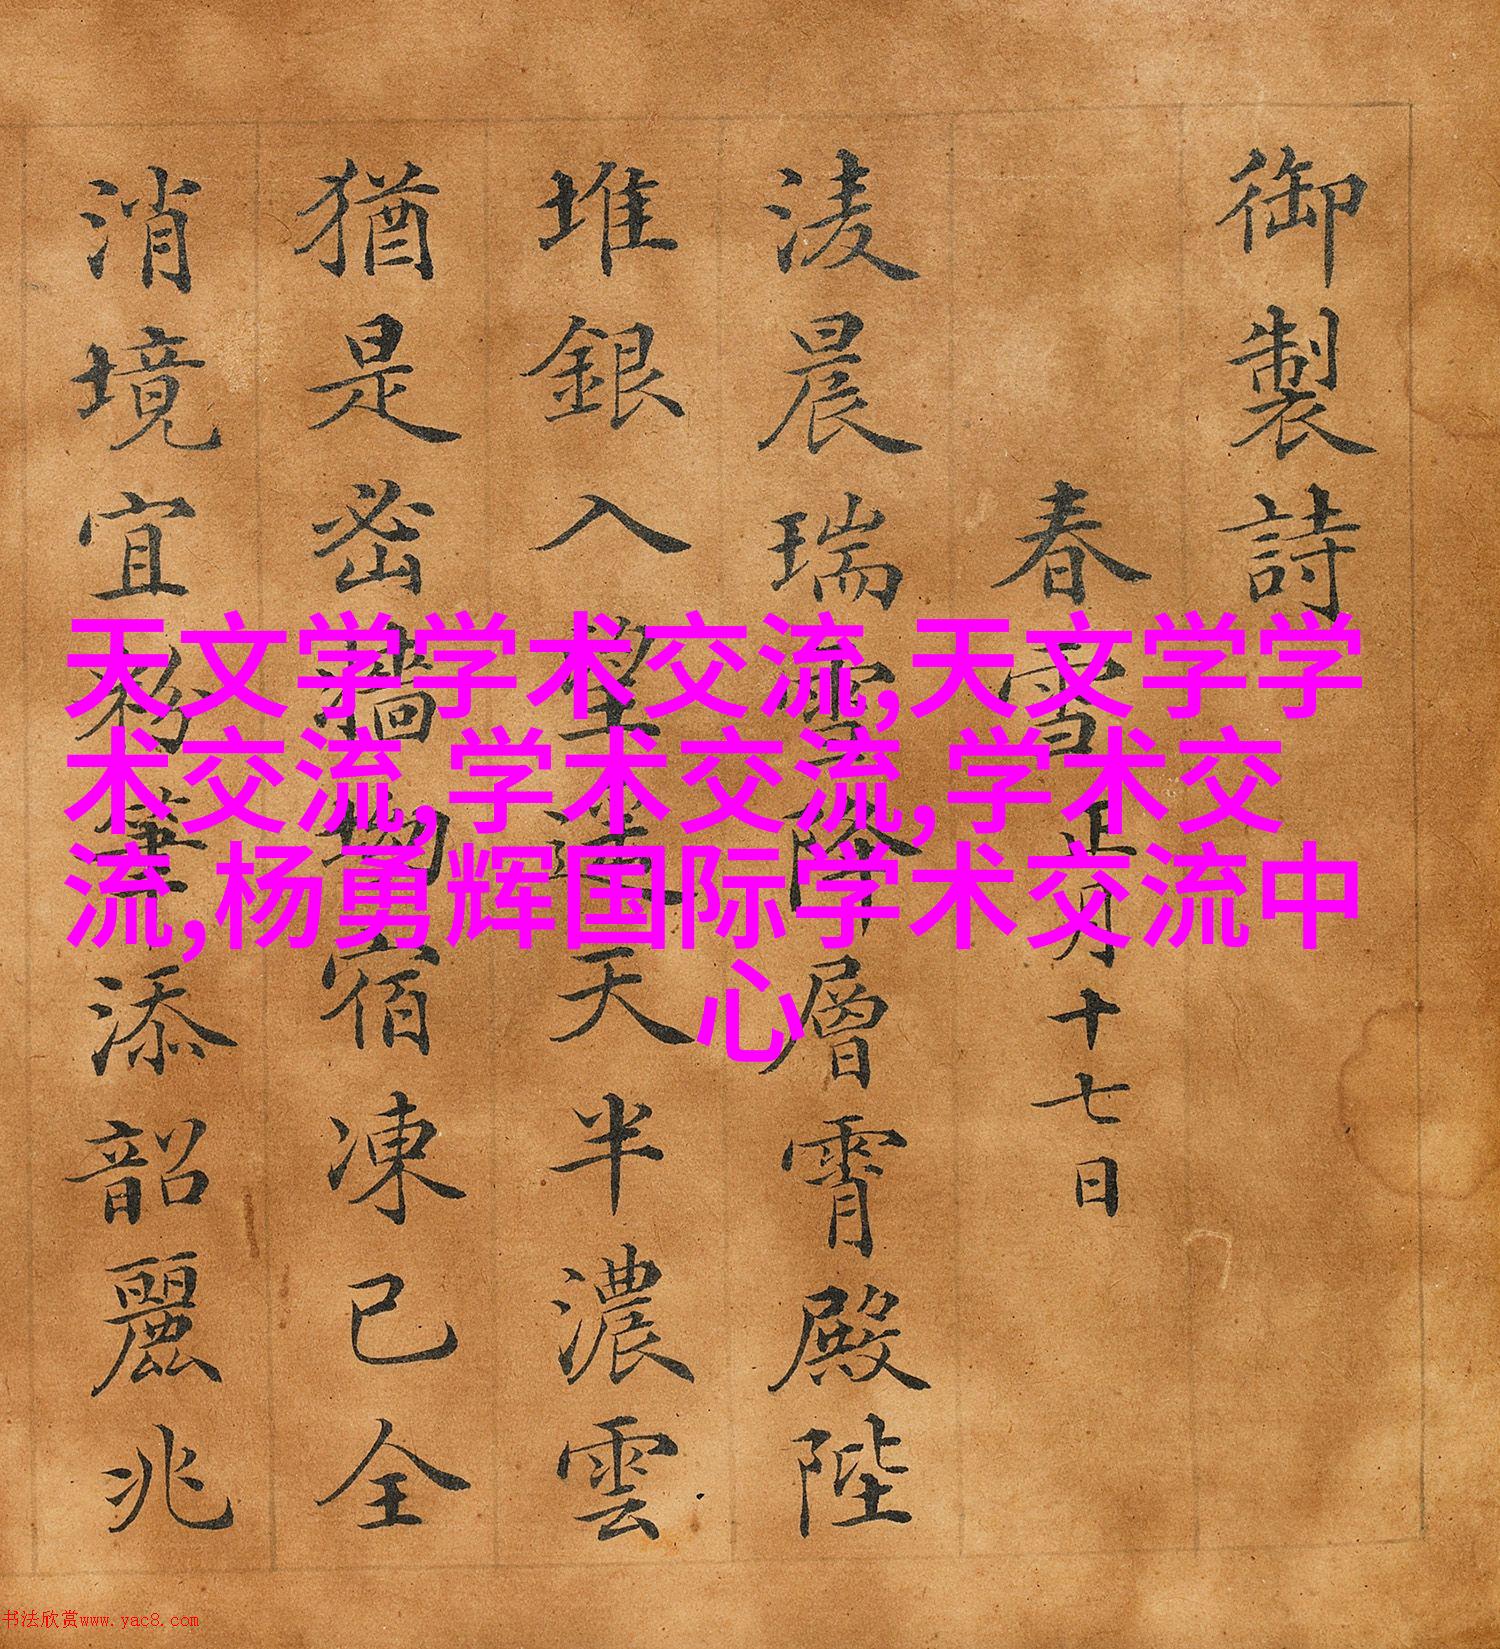 御製詩
春雪正月十七日
淩晨瑞雪降層霄殿陛
堆銀入望遙天半濃雲
猶是密牆物宿凍已全
消境宜移筆添韶麗兆
天文学学术交流,天文学学
术交流,学术交流,学术交
流,杨勇辉国际学术交流中
心
书法欣赏www.yac8.com